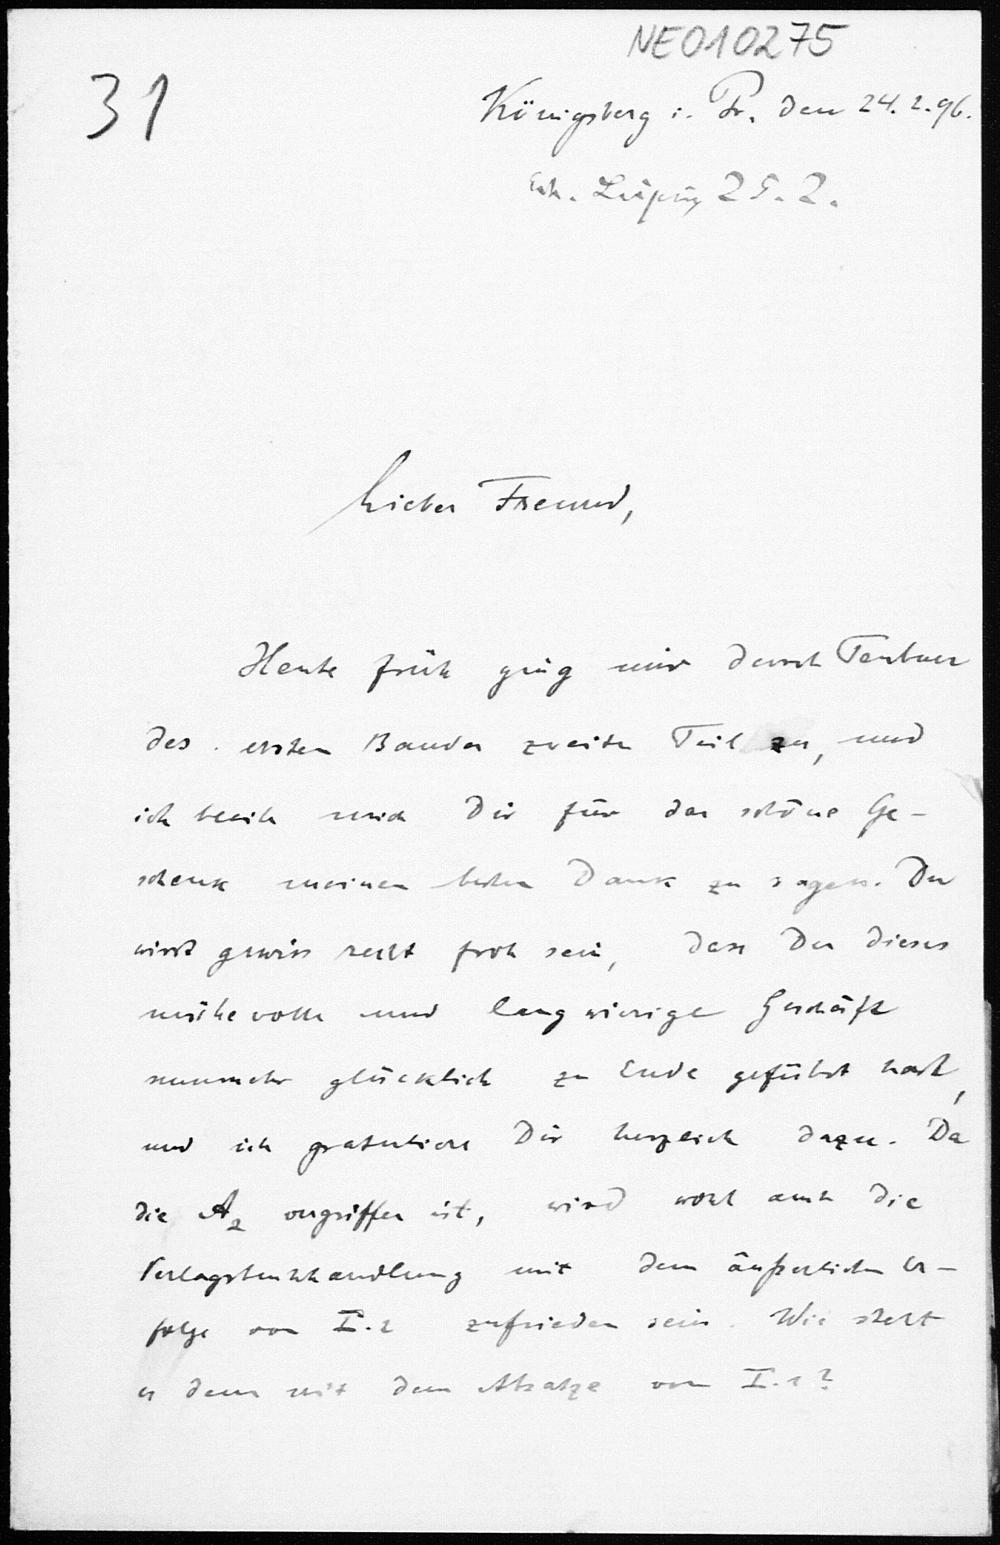 NEO10275
31
Königsberg i. Pr. den 24.2.96.
Erh. Leipzig 25.2.
Lieber Freund,
Heute früh ging mir durch Teubner
des ersten Bandes zweiter Teil zu, und
ich beeile mich Dir für das schöne Ge-
schenk meinen besten Dank zu sagen. Du
wirst gewiss recht froh sein, dass Du dieses
mühevolle und langwierige Geschäft
nunmehr glücklich zu Ende geführt hast,
und ich gratuliere Dir herzlich dazu. Da
die A2 vergriffen ist, wird wohl auch die
Verlagsbuchhandlung mit dem äußerlichen Er-
folge von I.2 zufrieden sein. Wie steht
es denn mit dem Absatze von I.1?